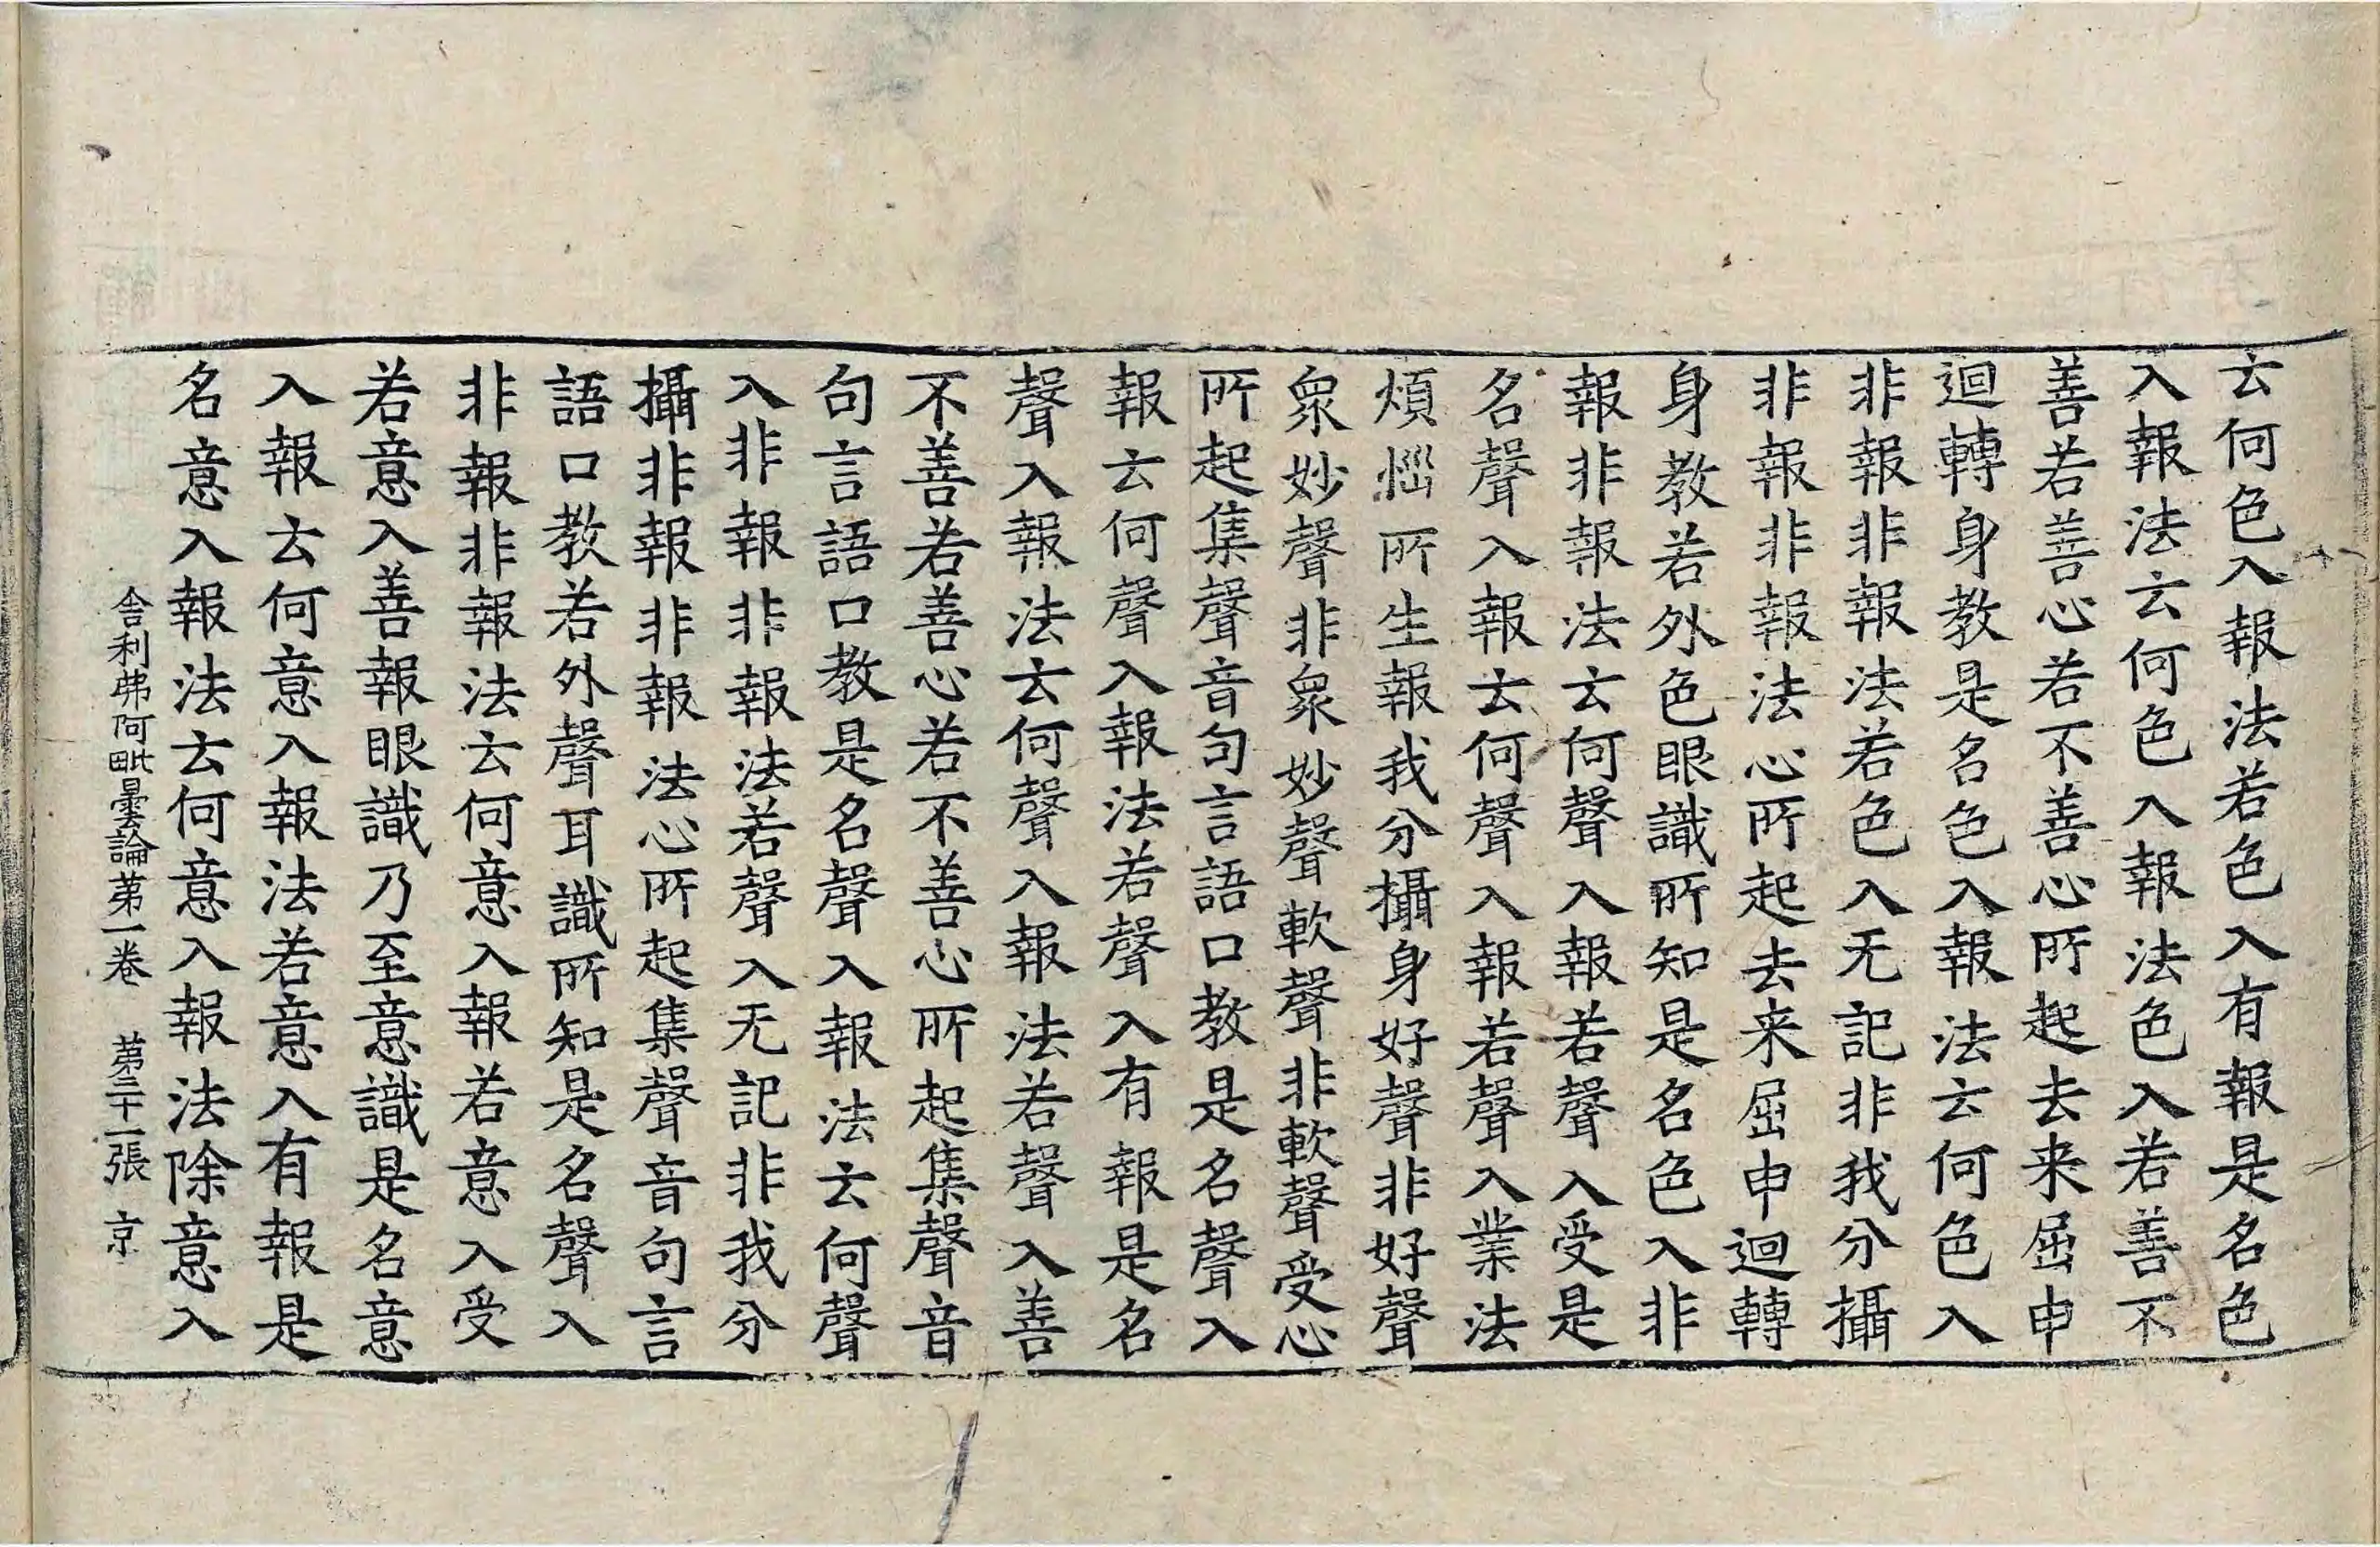 云何色入報法若色入有報是名色
入報法云何色入報法色入若善不
善若善心若不善心所起去来屈申
迴轉身教是名色入報法云何色入
非報非報法若色入无記非我分攝
非報非報法心所起去来屈申迴轉
身教若外色眼識所知是名色入非
報非報法云何聲入報若聲入受是
名聲入報云何聲入報若聲入業法
煩惱所生報我分攝身好聲非好聲
眾妙聲非眾妙聲軟聲非軟聲受心
所起集聲音句言語口教是名聲入
報云何聲入報法若聲入有報是名
聲入報法云何聲入報法若聲入善
不善若善心若不善心所起集聲音
句言語口教是名聲入報法云何聲
入非報非報法若聲入无記非我分
攝非報非報法心所起集聲音句言
語口教若外聲耳識所知是名聲入
非報非報法云何意入報若意入受
若意入善報眼識乃至意識是名意
入報云何意入報法若意入有報是
名意入報法云何意入報法除意入
舍利弗阿毗曇論第一卷　第二十一張　京